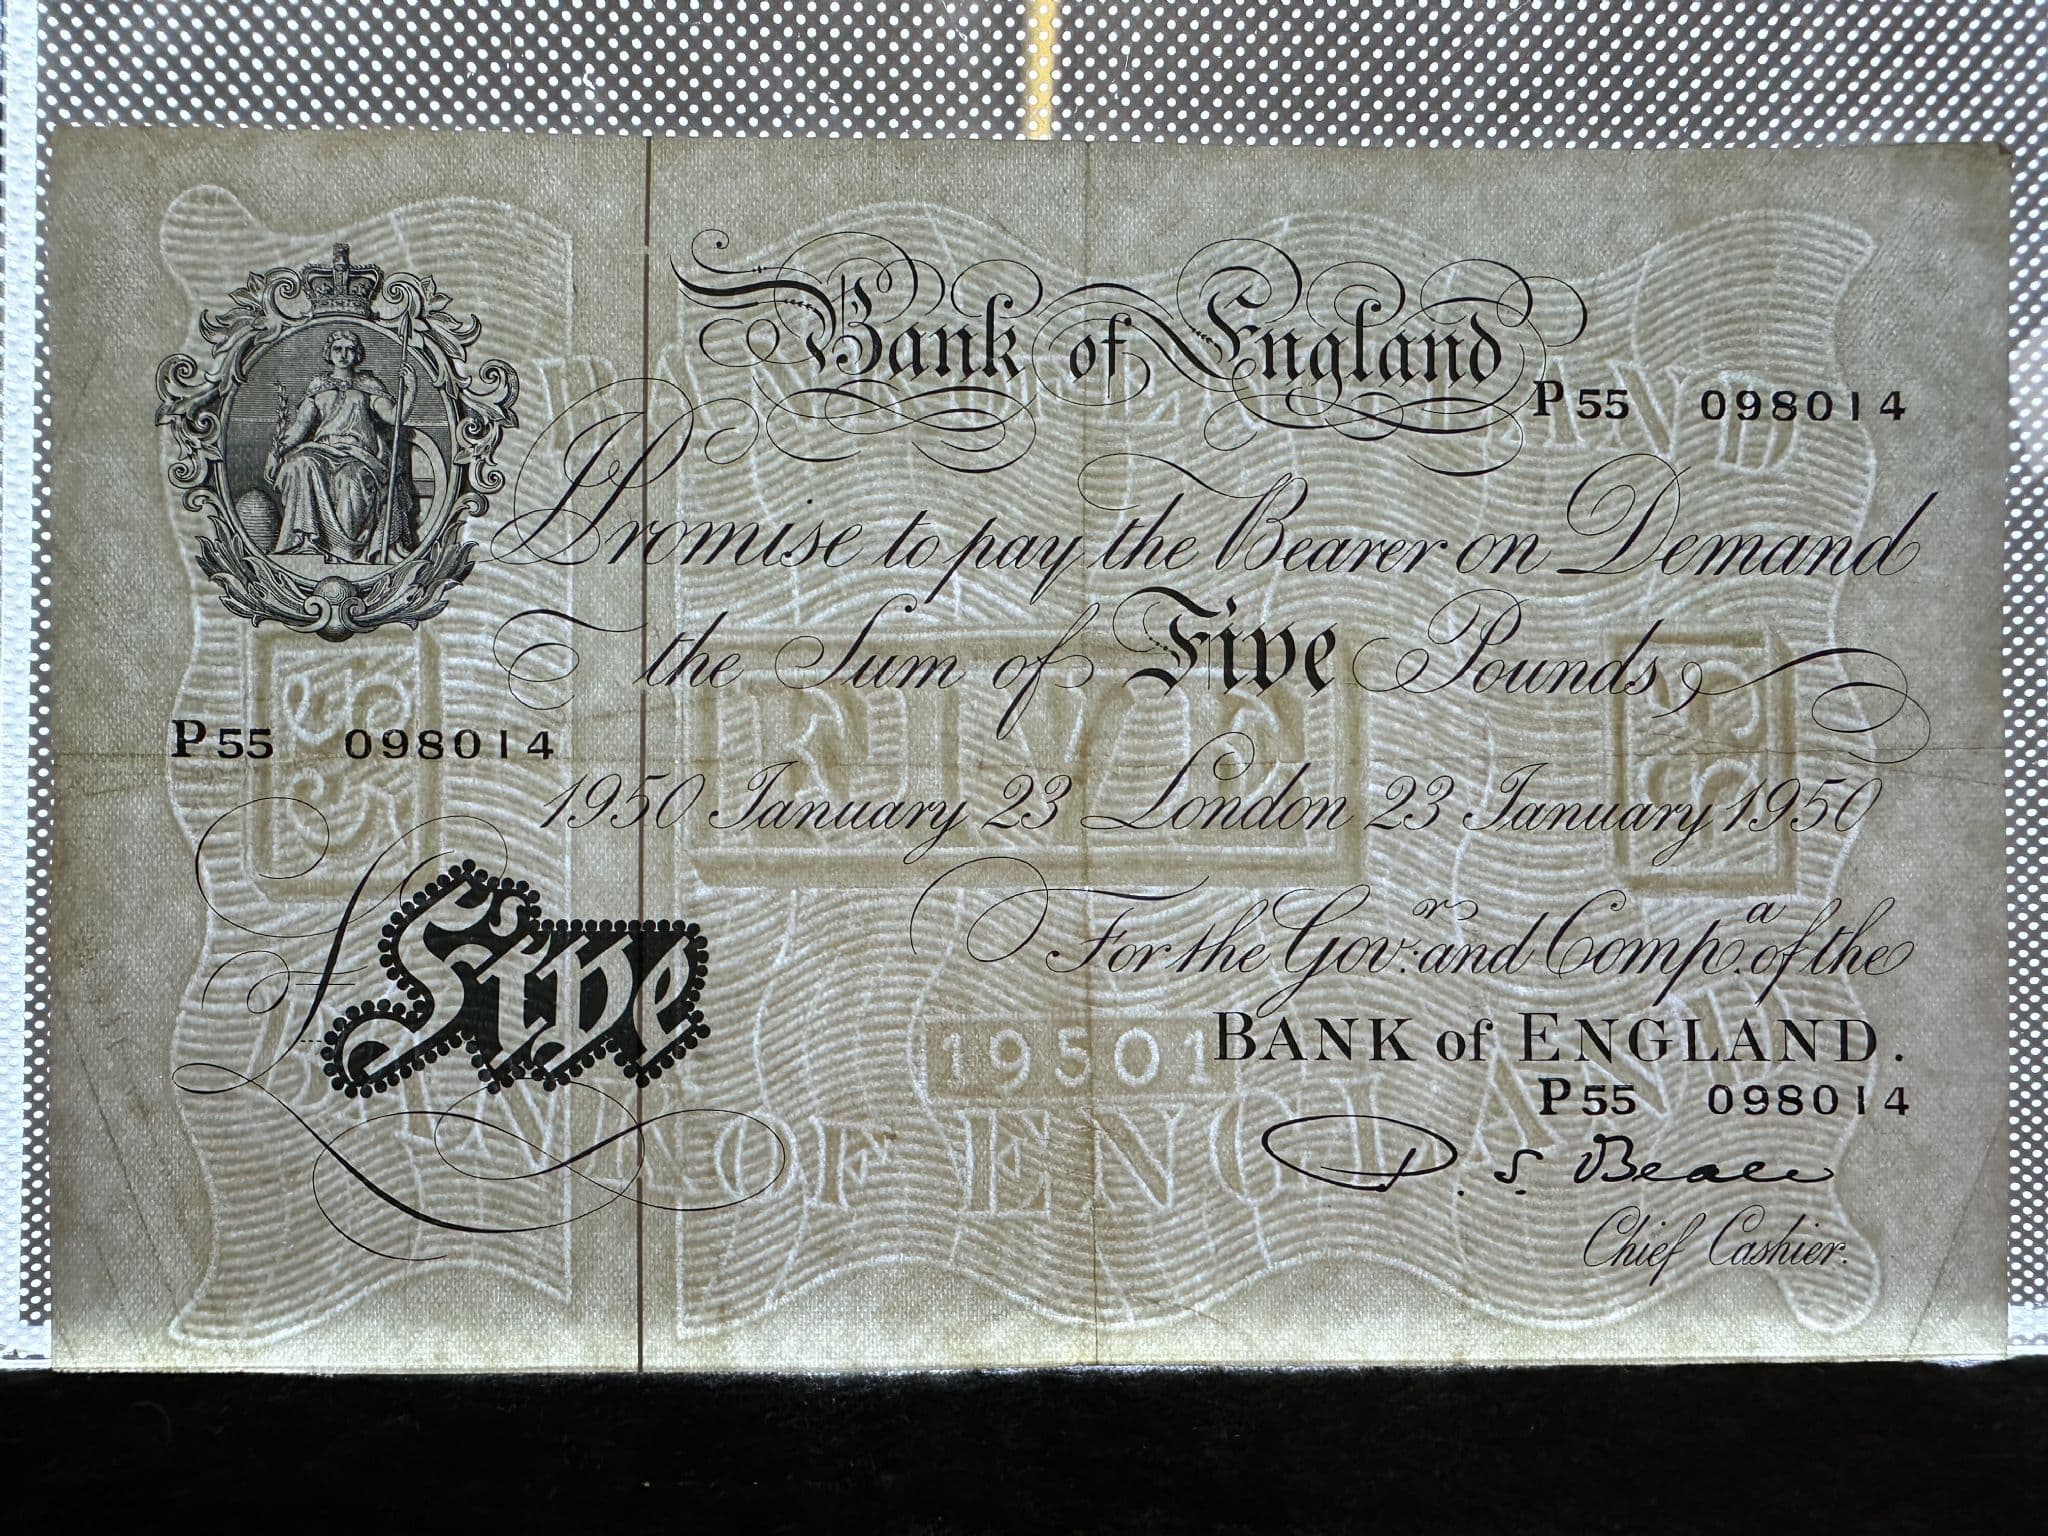 Bank of England
P 55 098014
I Promise to pay the Bearer on Demand
the Sum of Five Pounds
P 55 098014
1950 January 23 London 23 January 1950
For the Govr. and Compa. of the
£ Five
BANK of ENGLAND.
P 55 098014
P. S. Beale
Chief Cashier.
BANK OF ENGLAND
5 FIVE 5
19501
BANK OF ENGLAND